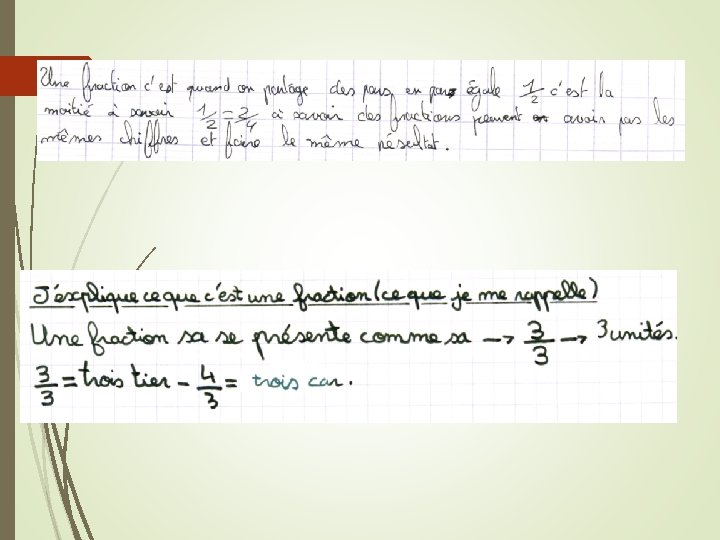 Une fraction c'est quand on partage des pars en pars égale 1/2 c'est la
moitié à savoir 1/2 = 2/4 à savoir des fractions peuvent avoir pas les
mêmes chiffres et faire le même résultat.
J'explique ce que c'est une fraction (ce que je me rappelle)
Une fraction sa se présente comme sa → 3/3 → 3 unités.
3/3 = trois tier - 4/3 = trois car.